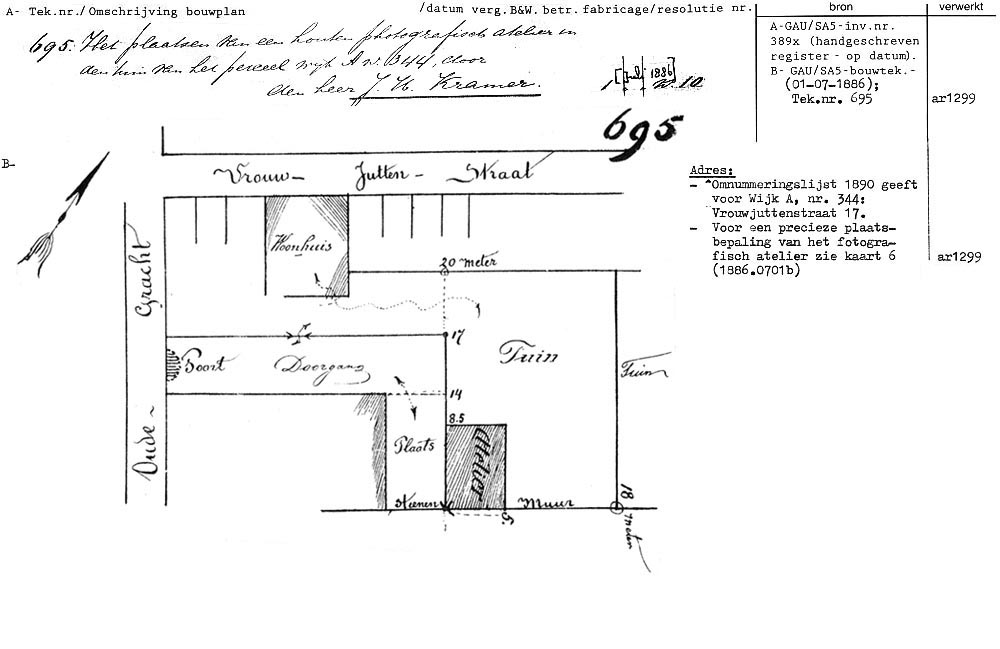 A- Tek.nr./ Omschrijving bouwplan
/datum verg.B&W. betr. fabricage/resolutie nr.
bron
verwerkt
695. Het plaatsen van een houten photografisch atelier in
den tuin van het perceel wijk A no. 344, door
den heer J. H. Kramer.
1886
no. 10
A-GAU/SA5-inv.nr.
389x (handgeschreven
register - op datum).
B- GAU/SA5-bouwtek.-
(01-07-1886);
Tek.nr. 695
ar1299
695
B-
Vrouw- Jutten- Straat
Adres:
- Omnummeringslijst 1890 geeft
voor Wijk A, nr. 344:
Vrouwjuttenstraat 17.
- Voor een precieze plaats-
bepaling van het fotogra-
fisch atelier zie kaart 6
(1886.0701b)
ar1299
Woonhuis
20 meter
Oude- Gracht
17
Tuin
Tuin
Poort Doorgang
14
8.5
Plaats
Atelier
Steenen Muur
5.
18 meter